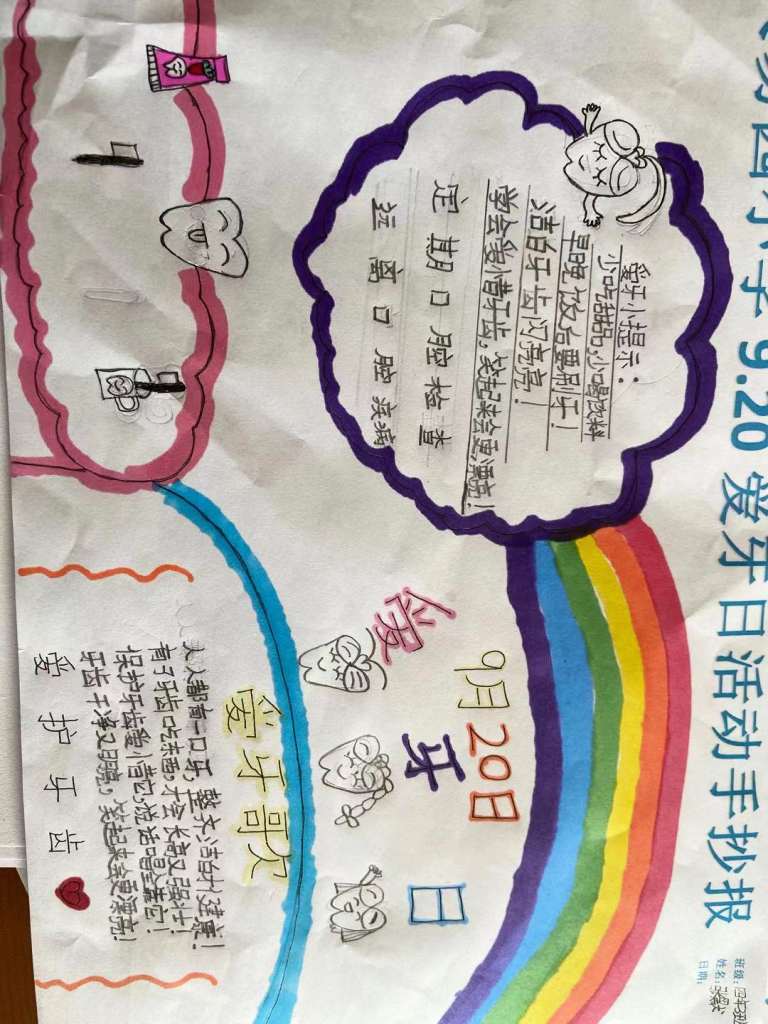 四小学 9.20 爱牙日活动手抄报
班级:四年级
姓名:张
日期:
爱牙小提示:
少吃甜品,少喝饮料
早晚饭后要刷牙!
洁白牙齿闪亮亮!
学会爱惜牙齿,笑起来会更漂亮!
定期口腔检查
远离口腔疾病
9月20日
爱牙日
爱牙歌
人人都有一口牙,洁白才健康!
有了牙齿吃东西,才会长高又强壮!
保护牙齿爱惜它,
牙齿干净又明亮,笑起来会更漂亮!
爱护牙齿